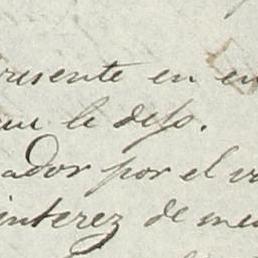 resente en en
que le dejo.
ador por el v
interez de me